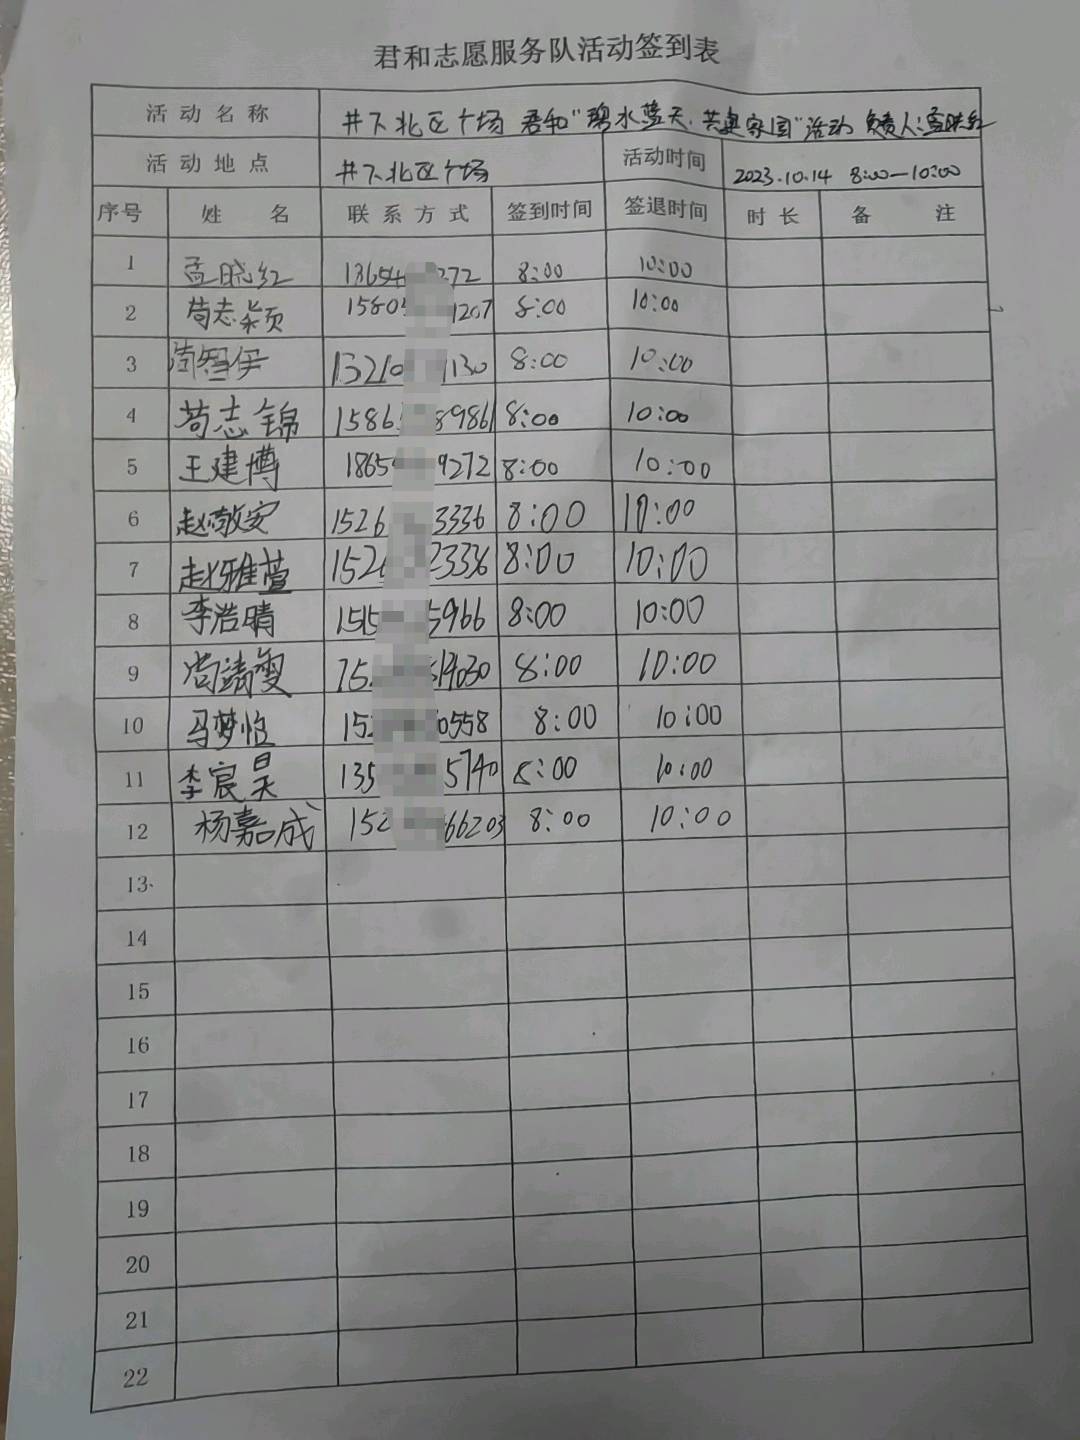 君和志愿服务队活动签到表
活动名称 井下北区广场 君和"碧水蓝天,共建家园"活动 负责人:孟晓红
活动地点 井下北区广场 活动时间 2023.10.14 8:00—10:00
序号 姓名 联系方式 签到时间 签退时间 时长 备注
1 孟晓红 13654 272 8:00 10:00
2 苟志颖 1580 1207 8:00 10:00
3 智伊 13210 1130 8:00 10:00
4 苟志锦 1586 8986 8:00 10:00
5 王建博 1865 9272 8:00 10:00
6 赵敬安 1526 3336 8:00 10:00
7 赵雅萱 152 3336 8:00 10:00
8 李浩晴 1515 5966 8:00 10:00
9 尚靖雯 15 4030 8:00 10:00
10 马梦怡 152 0558 8:00 10:00
11 李宸昊 135 5740 8:00 10:00
12 杨嘉成 152 66203 8:00 10:00
13
14
15
16
17
18
19
20
21
22